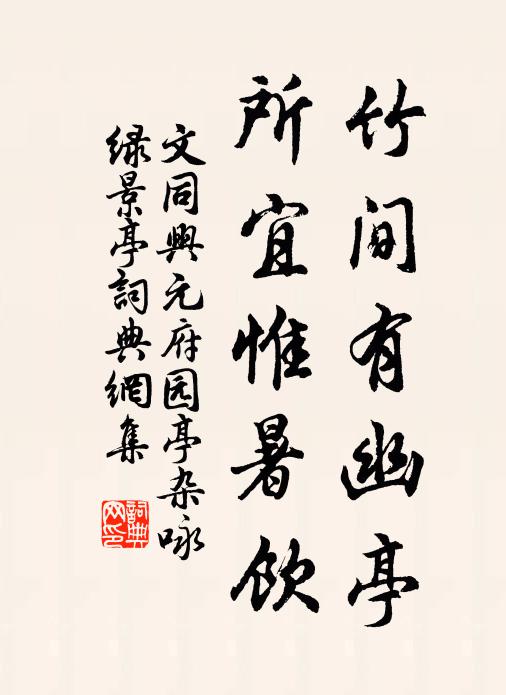 竹间有幽亭
所宜惟暑饮
文同興元府园亭杂咏
绿景亭詞典網集
詞典网印